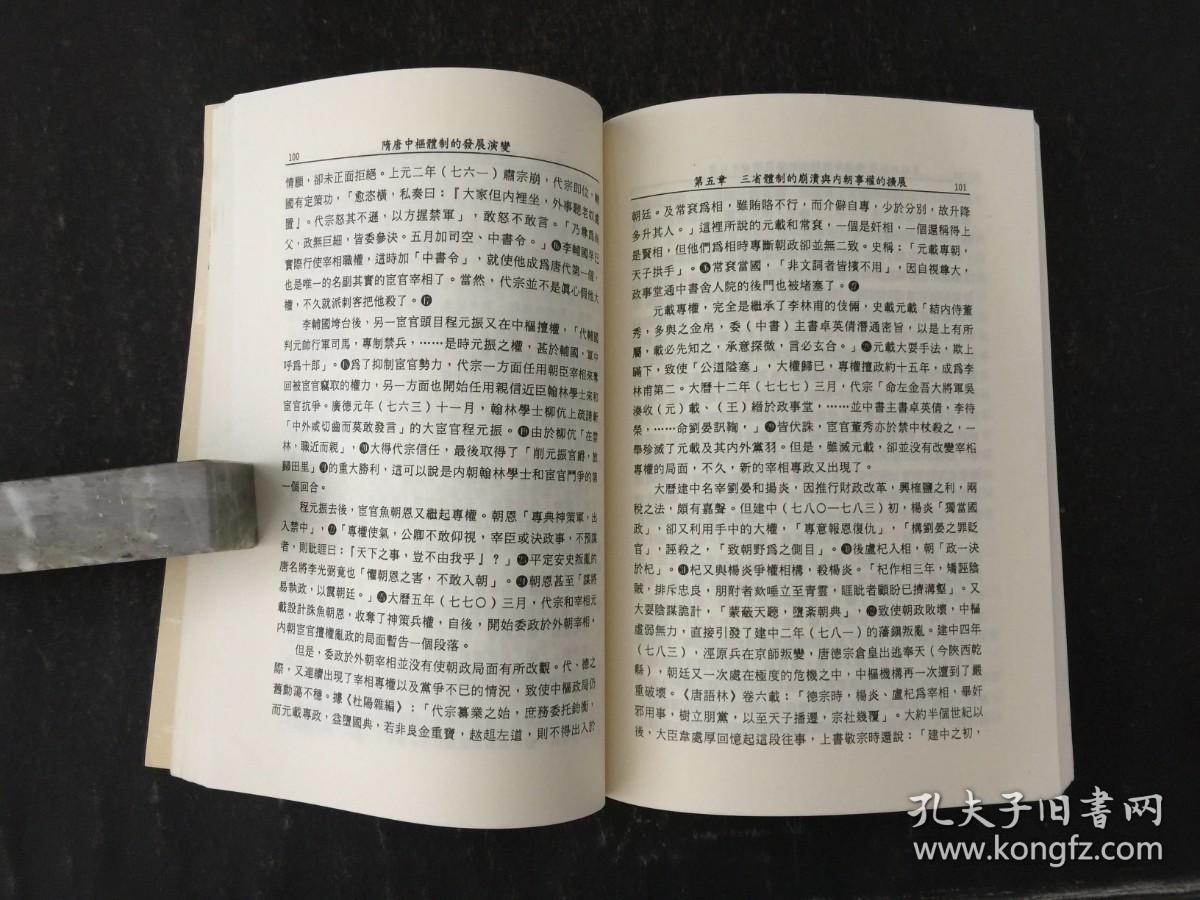 100
隋唐中樞體制的發展演變
情願，卻未正面拒絕。上元二年（七六一）肅宗崩，代宗即位，輔
國有定策功，「愈恣橫，私奏曰：『大家但內裡坐，外事聽老奴處
置』。代宗怒其不遜，以方握禁軍」，敢怒不敢言。「乃尊爲尚
父，政無巨細，皆委參決。五月加司空、中書令。」⓰李輔國早已
實際行使宰相職權，這時加「中書令」，就使他成爲唐代第一個，
也是唯一的名副其實的宦官宰相了。當然，代宗並不是眞心假他大
權，不久就派刺客把他殺了。⓱
李輔國垮台後，另一宦官頭目程元振又在中樞擅權，「代輔國
判元帥行軍司馬，專制禁兵，……是時元振之權，甚於輔國，軍中
呼爲十郎」。⓲爲了抑制宦官勢力，代宗一方面任用朝臣宰相來奪
回被宦官竊取的權力，另一方面也開始任用親信近臣翰林學士來和
宦官抗爭。廣德元年（七六三）十一月，翰林學士柳伉上疏請斬
「中外咸切齒而莫敢發言」的大宦官程元振。⓳由於柳伉「在禁
林，職近而親」，⓴大得代宗信任，最後取得了「削元振官爵，放
歸田里」㉑的重大勝利，這可以說是內朝翰林學士和宦官鬥爭的第
一個回合。
程元振去後，宦官魚朝恩又繼起專權。朝恩「專典神策軍，出
入禁中」，㉒「專權使氣，公卿不敢仰視，宰臣或決政事，不預謀
者，則眦睚曰：『天下之事，豈不由我乎』？」㉓平定安史叛亂的
唐名將李光弼竟也「懼朝恩之害，不敢入朝」。㉔朝恩甚至「謀將
易執政，以震朝廷。」㉕大曆五年（七七〇）三月，代宗和宰相元
載設計誅魚朝恩，收奪了神策兵權，自後，開始委政於外朝宰相，
內朝宦官擅權亂政的局面暫告一個段落。
但是，委政於外朝宰相並沒有使朝政局面有所改觀。代、德之
際，又連續出現了宰相專權以及黨爭不已的情況，致使中樞政局仍
舊動蕩不穩。據《杜陽雜編》：「代宗纂業之始，庶務委托鈞衡，
而元載專政，益墮國典，若非良金重寶，趑趄左道，則不得出入於
第五章　三省體制的崩潰與內朝事權的擴展
101
朝廷。及常袞爲相，雖賄賂不行，而介僻自專，少於分別，故升降
多升其人。」這裡所說的元載和常袞，一個是奸相，一個還稱得上
是賢相，但他們爲相時專斷朝政卻並無二致。史稱：「元載專朝，
天子拱手」。㉖常袞當國，「非文詞者皆擯不用」，因自視尊大，
政事堂通中書舍人院的後門也被堵塞了。㉗
元載專權，完全是繼承了李林甫的伎倆，史載元載「結內侍董
秀，多與之金帛，委（中書）主書卓英倩潛通密旨，以是上有所
屬，載必先知之，承意探微，言必玄合。」㉘元載大耍手法，欺上
瞞下，致使「公道隘塞」，大權歸已，專權擅政約十五年，成爲李
林甫第二。大曆十二年（七七七）三月，代宗「命左金吾大將軍吳
湊收（元）載、（王）縉於政事堂，……並中書主書卓英倩，李待
榮，……命劉晏訊鞫，」㉙皆伏誅，宦官董秀亦於禁中杖殺之，一
舉殄滅了元載及其內外黨羽。但是，雖滅元載，卻並沒有改變宰相
專權的局面，不久，新的宰相專政又出現了。
大曆建中名宰劉晏和揚炎，因推行財政改革，興榷鹽之利，兩
稅之法，頗有嘉聲。但建中（七八〇－七八三）初，楊炎「獨當國
政」，卻又利用手中的大權，「專意報恩復仇」，「構劉晏之罪貶
官」，誣殺之，「致朝野爲之側目」。㉚後盧杞入相，朝「政一決
於杞」。㉛杞又與楊炎爭權相構，殺楊炎。「杞作相三年，矯誣陰
賊，排斥忠良，朋附者欬唾立至青雲，睚眦者顧盼已擠溝壑」。又
大耍陰謀詭計，「蒙蔽天聽，墮紊朝典」，㉜致使朝政敗壞，中樞
虛弱無力，直接引發了建中二年（七八一）的藩鎭叛亂。建中四年
（七八三），涇原兵在京師叛變，唐德宗倉皇出逃奉天（今陝西乾
縣），朝廷又一次處在極度的危機之中，中樞機構再一次遭到了嚴
重破壞。《唐語林》卷六載：「德宗時，楊炎、盧杞爲宰相，畢奸
邪用事，樹立朋黨，以至天子播遷，宗社幾覆」。大約半個世紀以
後，大臣韋處厚回憶起這段往事，上書敬宗時還說：「建中之初，
孔夫子旧书网
www.kongfz.com